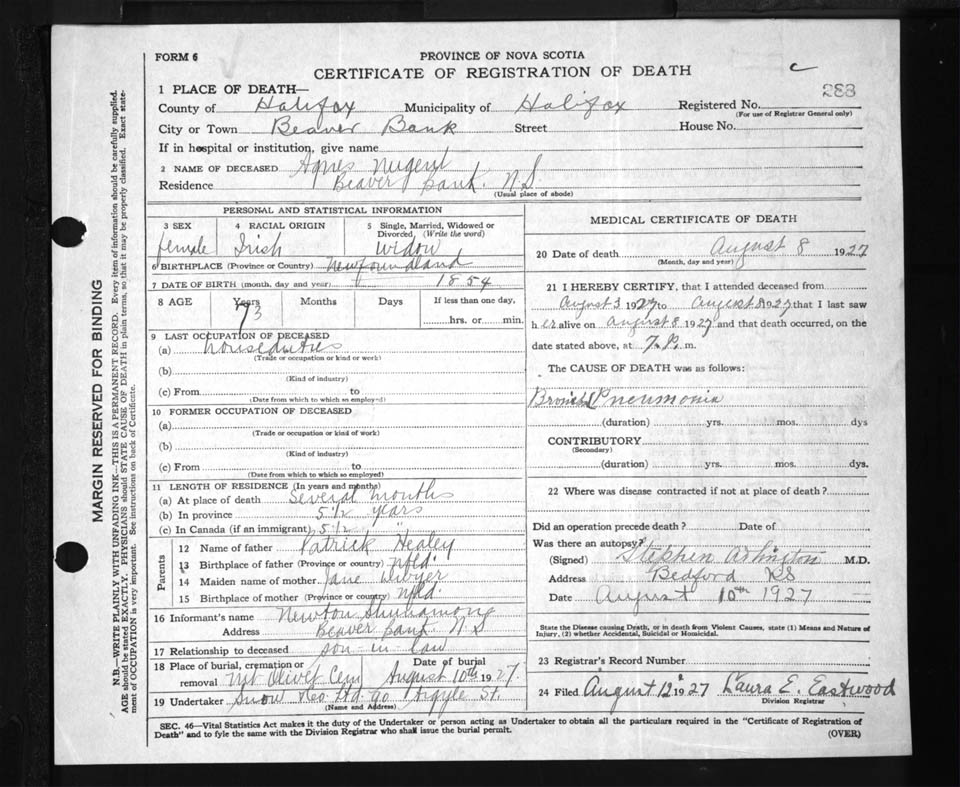 FORM 6
PROVINCE OF NOVA SCOTIA
CERTIFICATE OF REGISTRATION OF DEATH
c
1 PLACE OF DEATH—
County of Halifax Municipality of Halifax Registered No. 288
(For use of Registrar General only)
City or Town Beaver Bank Street House No.
If in hospital or institution, give name
2 NAME OF DECEASED Agnes Nugent
Residence Beaver Bank. N.S
(Usual place of abode)
PERSONAL AND STATISTICAL INFORMATION
3 SEX 4 RACIAL ORIGIN 5 Single, Married, Widowed or Divorced, (Write the word)
female Irish widow
6 BIRTHPLACE (Province or Country) Newfoundland
7 DATE OF BIRTH (month, day, and year) 1854
8 AGE Years Months Days If less than one day,
73 hrs. or min.
9 LAST OCCUPATION OF DECEASED
(a) houseduties
(Trade or occupation or kind or work)
(b)
(Kind of industry)
(c) From to
(Date from which to which so employed)
10 FORMER OCCUPATION OF DECEASED
(a)
(Trade or occupation or kind of work)
(b)
(Kind of industry)
(c) From to
(Date from which to which so employed)
11 LENGTH OF RESIDENCE (In years and months)
(a) At place of death Several months
(b) In province 51/2 years
(c) In Canada (if an immigrant) 51/2 "
Parents
12 Name of father Patrick Healey
13 Birthplace of father (Province or country) Nfld.
14 Maiden name of mother Jane Dwyer
15 Birthplace of mother (Province or country) Nfld.
16 Informant's name Newton
Address Beaver Bank N.S
17 Relationship to deceased son-in-law
18 Place of burial, cremation or removal Mt Olivet Cem Date of burial August 10th 1927.
19 Undertaker Snow &co Ltd 90 Argyle St.
(Name and Address)
MEDICAL CERTIFICATE OF DEATH
20 Date of death August 8 1927
(Month, day and year)
21 I HEREBY CERTIFY, that I attended deceased from
August 3 1927 to August 8 1927 that I last saw
h er alive on august 8 1927 and that death occurred, on the
date stated above, at 7.P. m.
The CAUSE OF DEATH was as follows:
Bronchl Pneumonia
(duration) yrs. mos. dys
CONTRIBUTORY
(Secondary)
(duration) yrs. mos. dys.
22 Where was disease contracted if not at place of death?
Did an operation precede death? Date of
Was there an autopsy?
(Signed) Stephen M.D.
Address Bedford NS
Date August 10th 1927
State the Disease causing Death, or in death from Violent Causes, state (1) Means and Nature of
Injury, (2) whether Accidental, Suicidal or Homicidal.
23 Registrar's Record Number
24 Filed August 12 1927 Laura E. Eastwood
Division Registrar
SEC. 46—Vital Statistics Act makes it the duty of the Undertaker or person acting as Undertaker to obtain all the particulars required in the "Certificate of Registration of
Death" and to fyle the same with the Division Registrar who shall issue the burial permit.
(OVER)
MARGIN RESERVED FOR BINDING
N.B.—WRITE PLAINLY WITH UNFADING INK—THIS IS A PERMANENT RECORD. Every item of information should be carefully supplied.
AGE should be stated EXACTLY. PHYSICIANS should STATE CAUSE OF DEATH in plain terms, so that it may be properly classified. Exact state-
ment of OCCUPATION is very important. See instructions on back of Certificate.